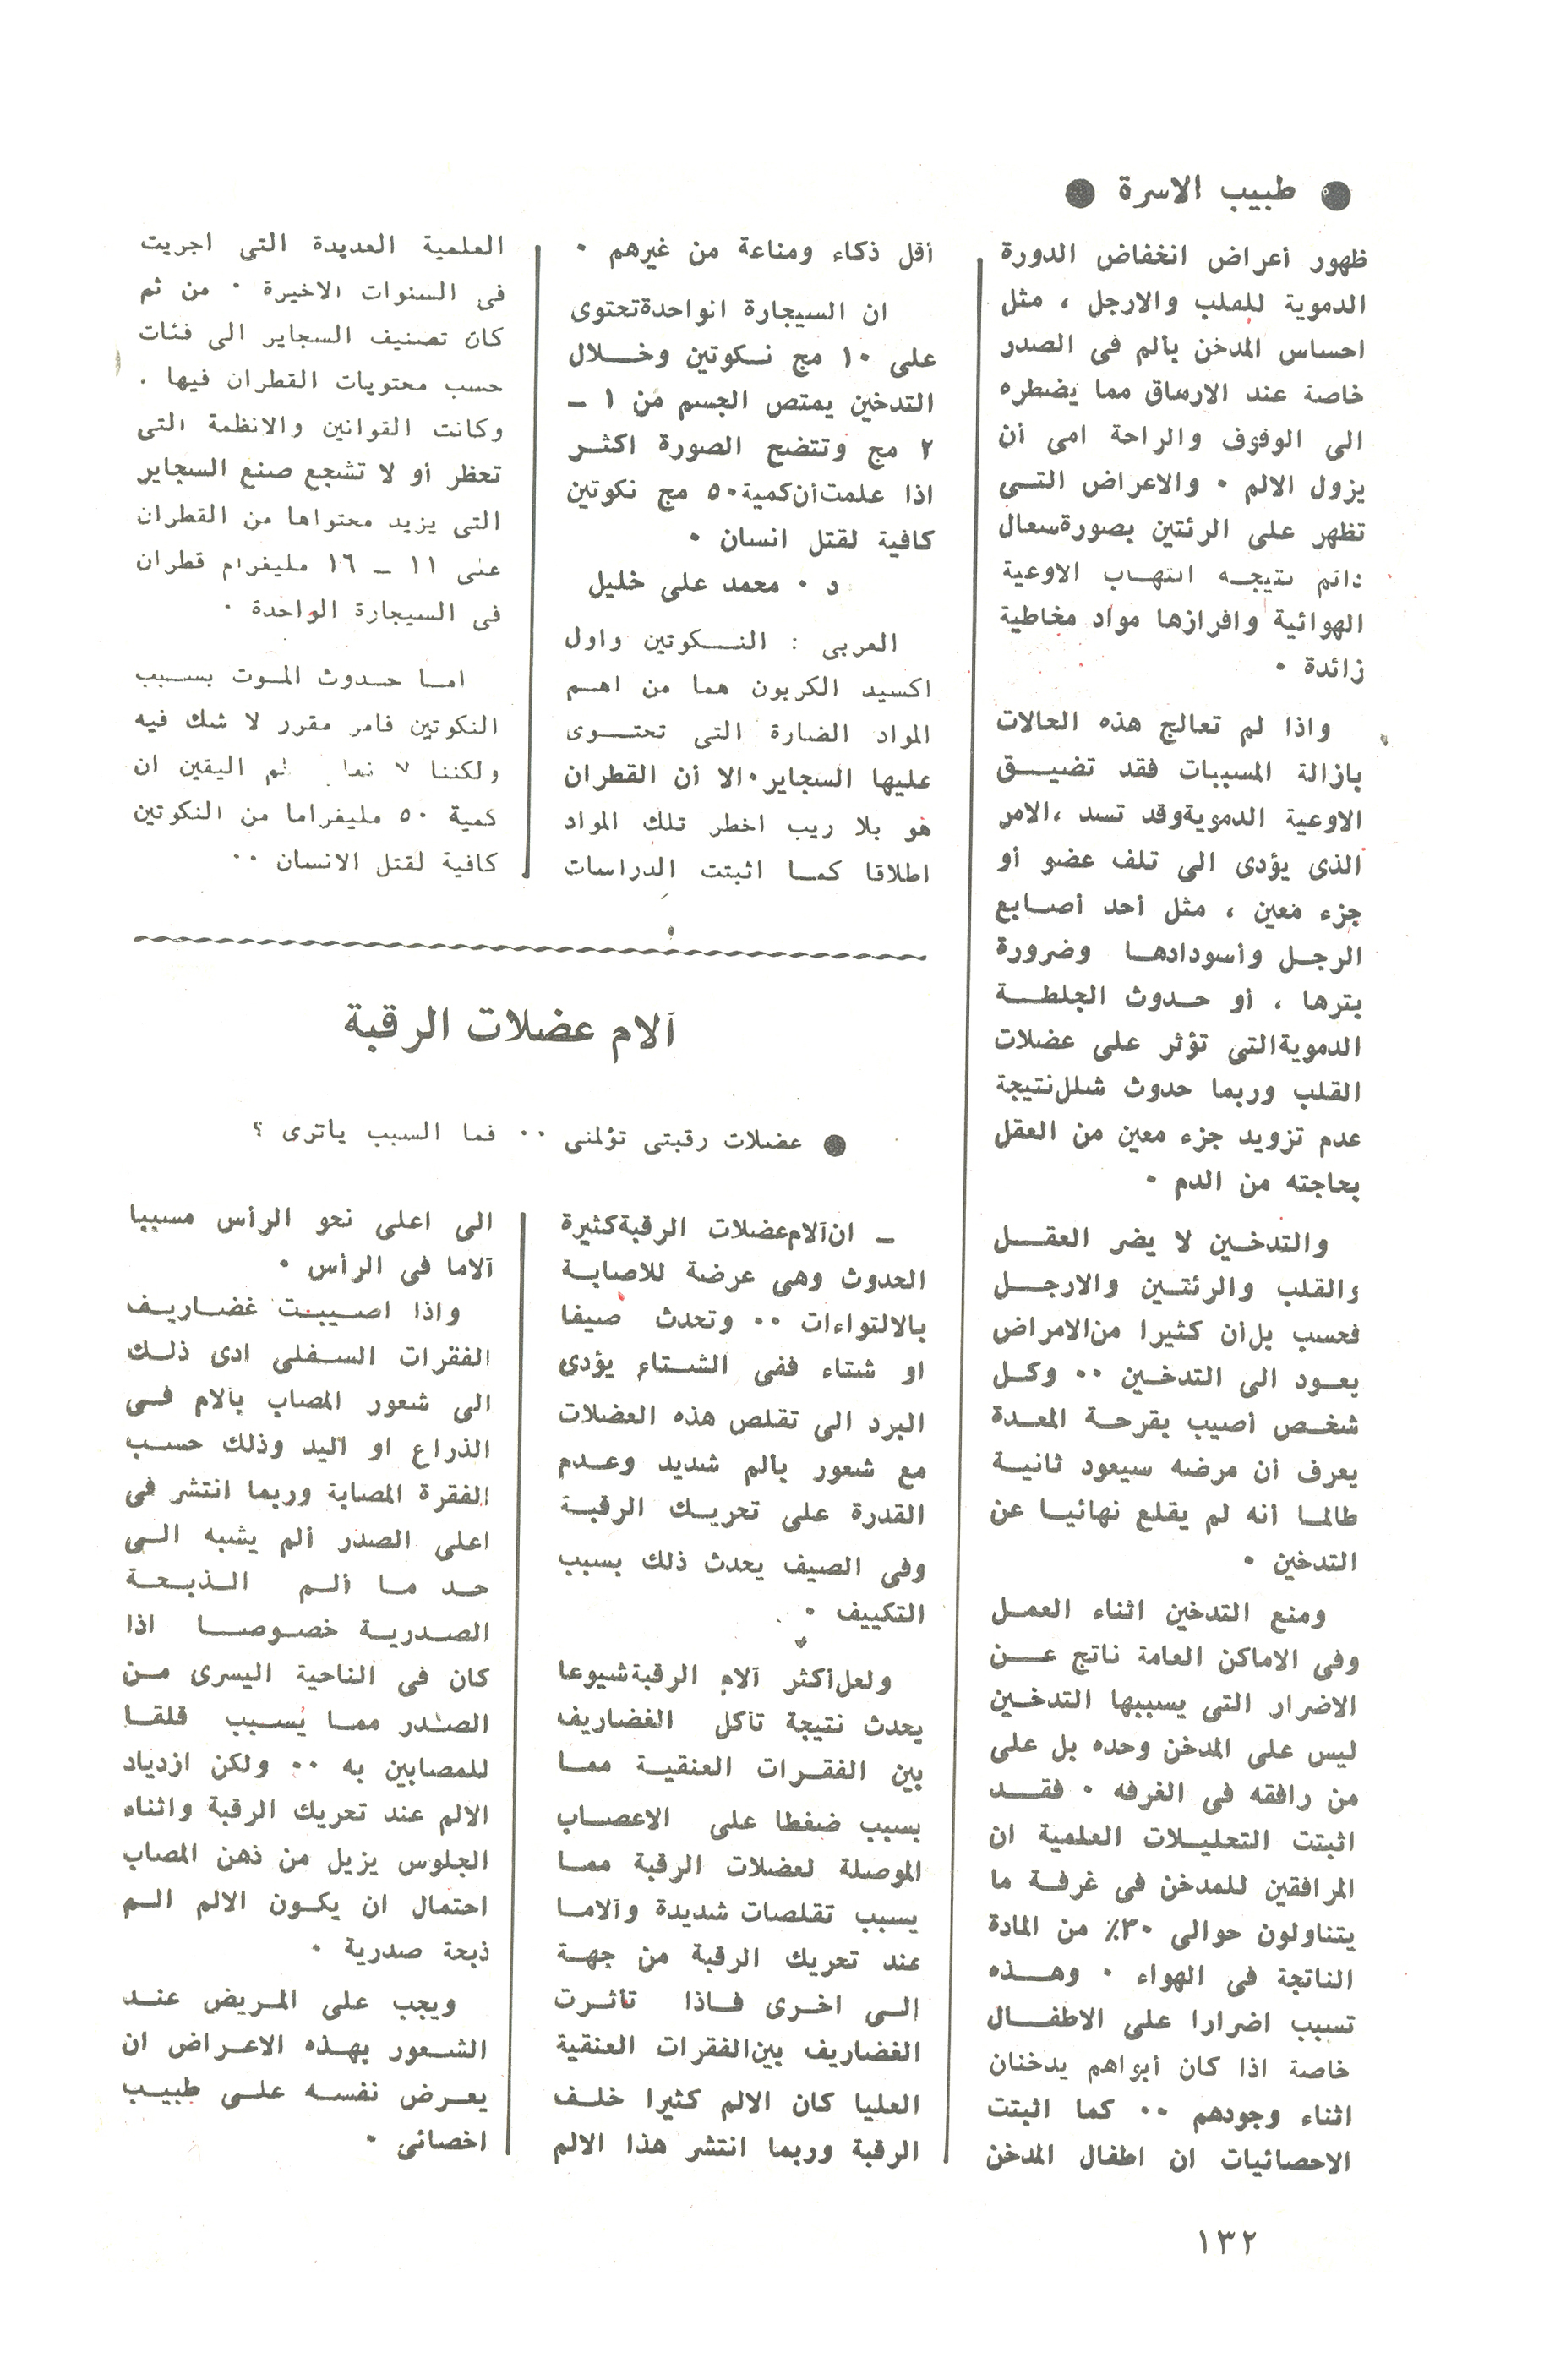 ● طبيب الاسرة ●
ظهور أعراض انخفاض الدورة
الدموية للقلب والارجل ، مثل
احساس المدخن بألم فى الصدر
خاصة عند الارساق مما يضطره
الى الوقوف والراحة امى أن
يزول الالم ٠ والاعراض التــى
تظهر على الرئتين بصورة سعال
دائم نتيجـه التهـاب الاوعية
الهوائية وافرازها مواد مخاطية
زائدة ٠
واذا لم تعالج هذه الحالات
بازالة المسببات فقد تضيــق
الاوعية الدموية وقد تسد ، الامر
الذى يؤدى الى تلف عضو أو
جزء معين ، مثل أحد أصـابع
الرجـل وأسودادهـا وضرورة
بترها ، أو حـدوث الجلطــة
الدموية التى تؤثر على عضلات
القلب وربما حدوث شلل نتيجة
عدم تزويد جزء معين من العقل
بحاجته من الدم ٠
والتدخـين لا يضر العقــل
والقلب والرئتـين والارجــل
فحسب بل أن كثيرا من الامراض
يعـود الى التدخـين ٠٠ وكـل
شخـص أصيب بقرحـة المعـدة
يعرف أن مرضه سيعود ثانيــة
طالمـا أنه لم يقلع نهائيـا عن
التدخين ٠
ومنع التدخين اثناء العمـل
وفى الاماكن العامة ناتج عــن
الاضرار التى يسببها التدخـين
ليس على المدخن وحده بل على
من رافقه فى الغرفه ٠ فقــد
اثبتت التحليـلات العلمية ان
المرافقين للمدخن فى غرفـة ما
يتناولون حوالى ٣٠٪ من المادة
الناتجة فى الهواء ٠ وهــذه
تسبب اضرارا على الاطفــال
خاصة اذا كان أبواهم يدخنان
اثناء وجودهم ٠٠ كما اثبتت
الاحصائيات ان اطفال المدخن
أقل ذكاء ومناعة من غيرهم ٠
ان السيجارة انواحدة تحتوى
على ١٠ مج نـكوتين وخــلال
التدخين يمتص الجسم من ١ ــ
٢ مج وتتضح الصورة اكثــر
اذا علمت أن كمية ٥٠ مج نكوتين
كافية لقتل انسان ٠
د ٠ محمد على خليل
العربى : النــكوتين واول
اكسيد الكربون هما من اهـم
المواد الضارة التى تحتــوى
عليها السجاير ٠ الا أن القطران
هو بلا ريب اخطر تلك المواد
اطلاقا كمـا اثبتت الدراسات
العلمية العديدة التى اجريت
فى السنوات الاخيرة ٠ من ثم
كان تصنيف السجاير الى فئات
حسب محتويات القطران فيها ٠
وكانت القوانين والانظمة التى
تحظر أو لا تشجع صنع السجاير
التى يزيد محتواها من القطران
على ١١ ــ ١٦ مليغرام قطران
فى السيجارة الواحدة ٠
امـا حـدوث المـوت بسـبب
النكوتين فامر مقرر لا شك فيه
ولكننا لا اليقين ان
كمية ٥٠ مليغراما من النكوتين
كافية لقتل الانسان ٠٠
آلام عضلات الرقبة
● عضلات رقبتى تؤلمنى ٠٠ فما السبب ياترى ؟
ــ ان آلام عضلات الرقبة كثيرة
الحدوث وهى عرضة للاصابـة
بالالتواءات ٠٠ وتحدث صيفا
او شتاء ففى الشتـاء يؤدى
البرد الى تقلص هذه العضلات
مع شعور بألم شديد وعـدم
القدرة على تحريـك الرقبـة
وفى الصيف يحدث ذلك بسبب
التكييف ٠
ولعل أكثر آلام الرقبة شيوعا
يحدث نتيجة تآكل الغضاريف
بين الفقـرات العنقيـة ممـا
بسبب ضغطا على الاعصـاب
الموصلة لعضلات الرقبة ممـا
يسبب تقلصات شديدة وآلامـا
عند تحريك الرقبة من جهـة
الـى اخـرى فـاذا تأثـرت
الغضاريف بين الفقرات العنقية
العليا كان الالم كثيرا خلـف
الرقبة وربما انتشر هذا الالم
الى اعلى نحو الرأس مسببا
آلاما فى الرأس ٠
واذا اصـيبـت غضـاريـف
الفقرات السـفلى ادى ذلـك
الى شعور المصاب بآلام فـى
الذراع او اليد وذلك حسـب
الفقرة المصابة وربما انتشر فى
اعلى الصدر ألم يشبه الـى
حـد مـا ألـم الـذبـحـة
الصـدريـة خصـوصـا اذا
كان فى الناحية اليسرى مـن
الصـدر ممـا يسـبب قلقـا
للمصابين به ٠٠ ولكن ازدياد
الالم عند تحريك الرقبة واثناء
الجلوس يزيل من ذهن المصاب
احتمال ان يكـون الالم الـم
ذبحة صدرية ٠
ويجب على المـريض عنـد
الشـعور بهـذه الاعـراض ان
يعـرض نفسـه علـى طبيـب
اخصائى ٠
١٣٢